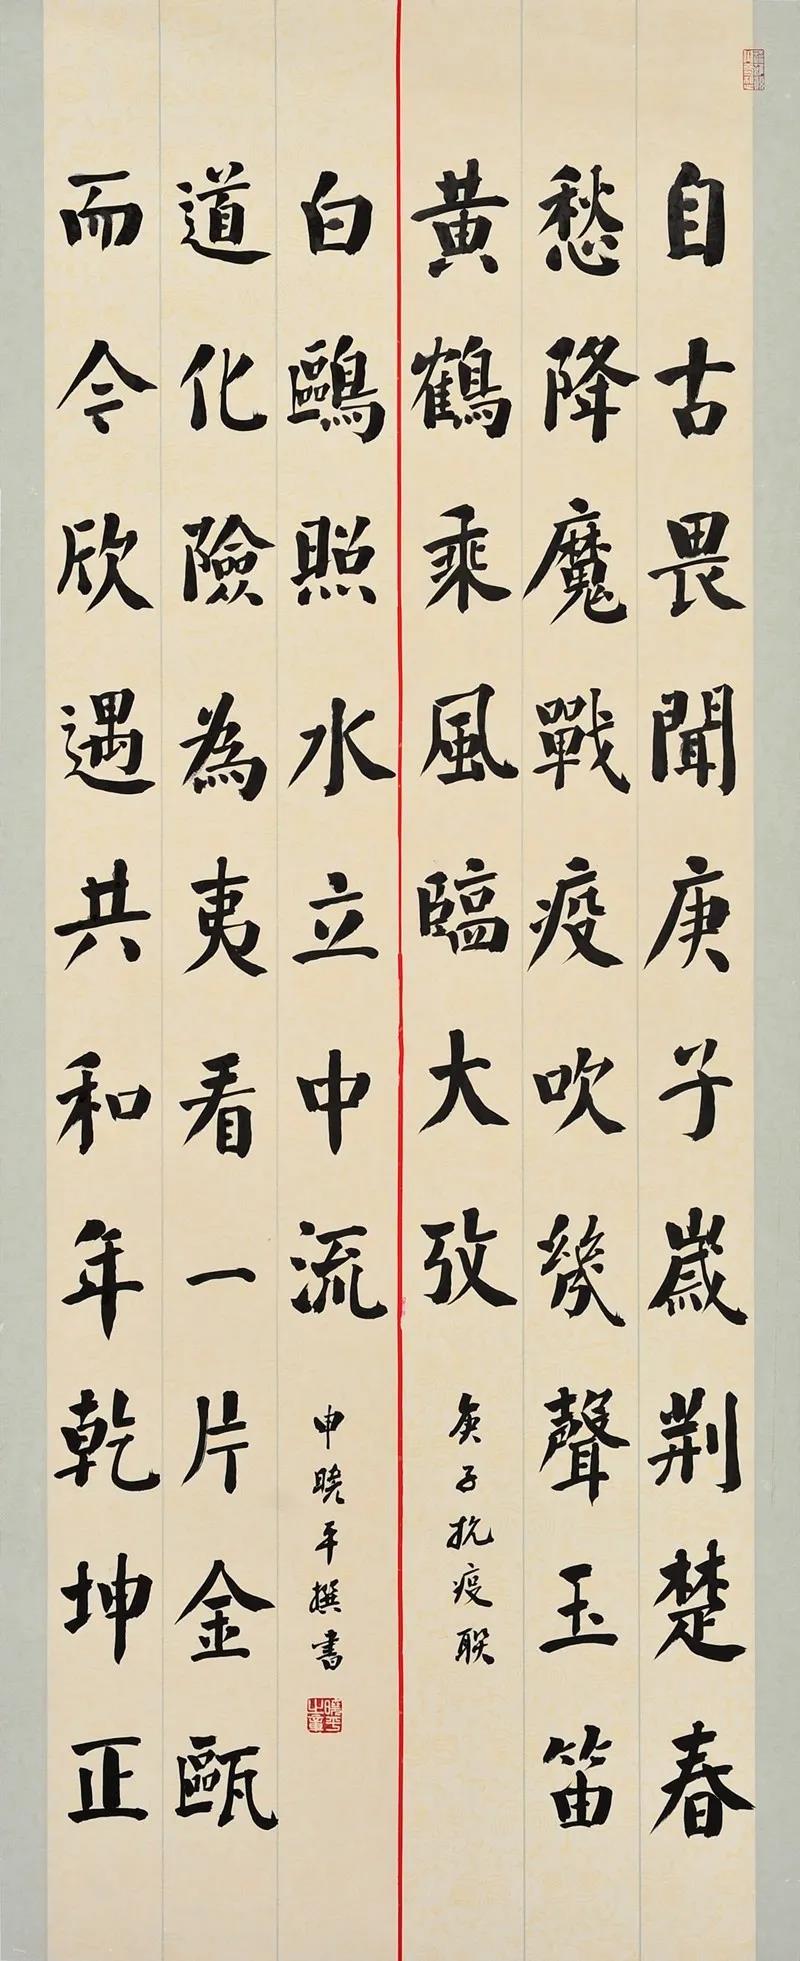 自古畏聞庚子歲荆楚春
愁降魔戰疫吹幾聲玉笛
黃鶴乘風臨大攷
庚子抗疫联
而今欣遇共和年乾坤正
道化險為夷看一片金甌
白鷗照水立中流
申曉平撰書